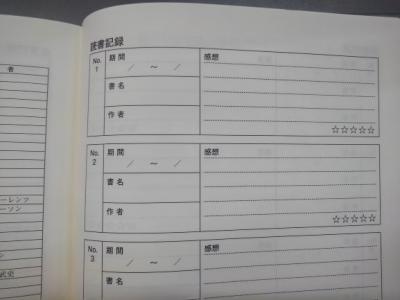 者
ーレンツ
ーソン
ン
武史
読書記録
No. 1 期間 感想
／ ～ ／
書名
作者
☆☆☆☆☆
No. 2 期間 感想
／ ～ ／
書名
作者
☆☆☆☆☆
No. 3 期間 感想
／ ～ ／
書名